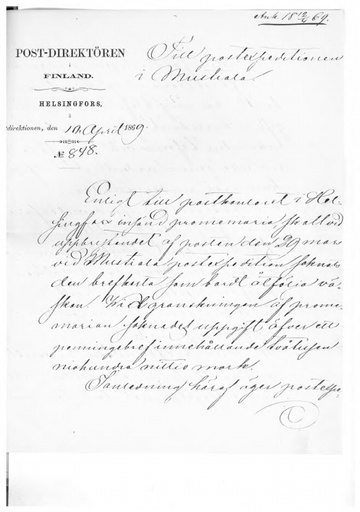 Ank. 18 12/4 69.
POST-DIREKTÖREN
i
FINLAND.
HELSINGFORS,
å
direktionen, den 10 April 1869.
№ 848.
Till postexpeditionen
i Mustiala
Enligt till postkontoret i Hel-
singfors insänd promemoria skall vid
uppbrytandet af posten den 29 mars
vid Mustiala postexpedition saknats
den brefkarta som bordt åtfölja vä-
skan. Vid granskningen af prome-
morian saknades uppgift öfver ett
penningebref innehållande tvåtusen
nittio mark.
I anledning häraf äger postexpe-